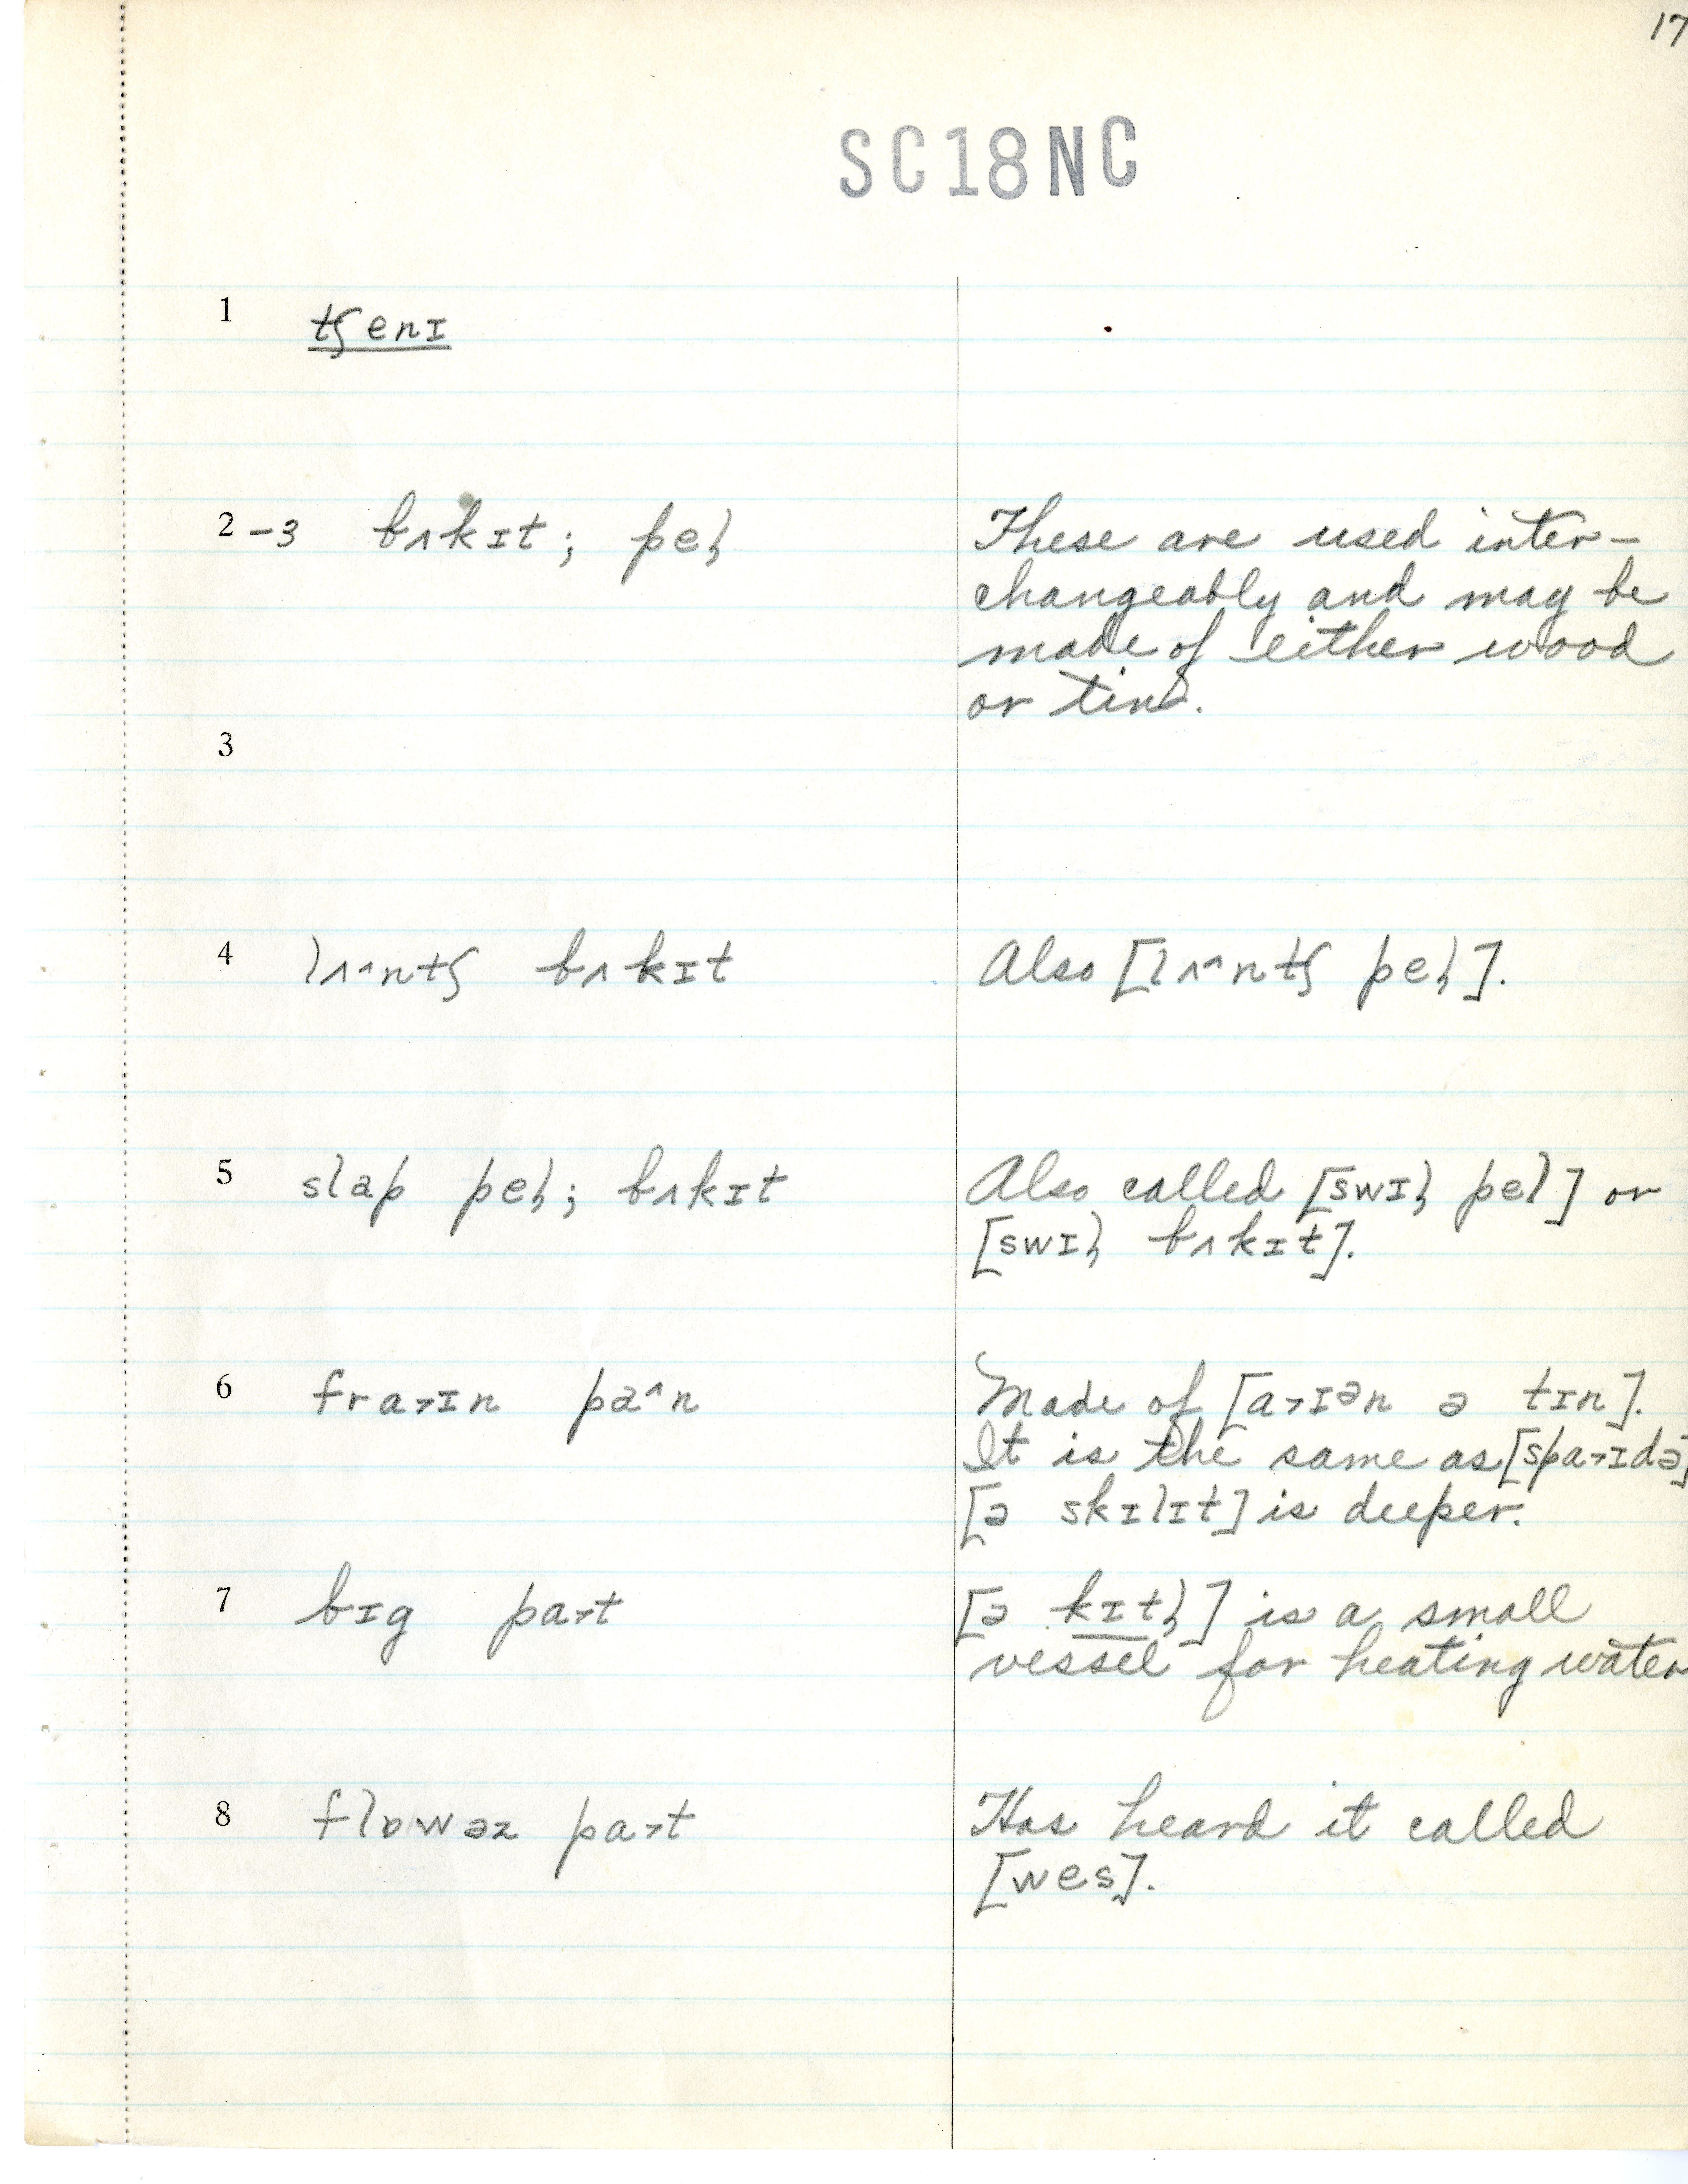 17
SC18NC
1 tʃenɪ
2 -3 bʌkɪt; pel̩
These are used inter-
changeably and may be
made of either wood
or tin.
3
4 lʌ^ntʃ bʌkɪt
Also [lʌ^ntʃ pel̩].
5 slap pel̩; bʌkɪt
Also called [swɪl̩ pel] or
[swɪl̩ bʌkɪt].
6 fra˃ɪn pa^n
Made of [a˃ɪən ə tɪn].
It is the same as [spa˃ɪdə]
[ə skɪlɪt] is deeper.
7 bɪg pa˃t
[ə kɪtl̩] is a small
vessel for heating water
8 flɒwəz pa˃t
Has heard it called
[wes].